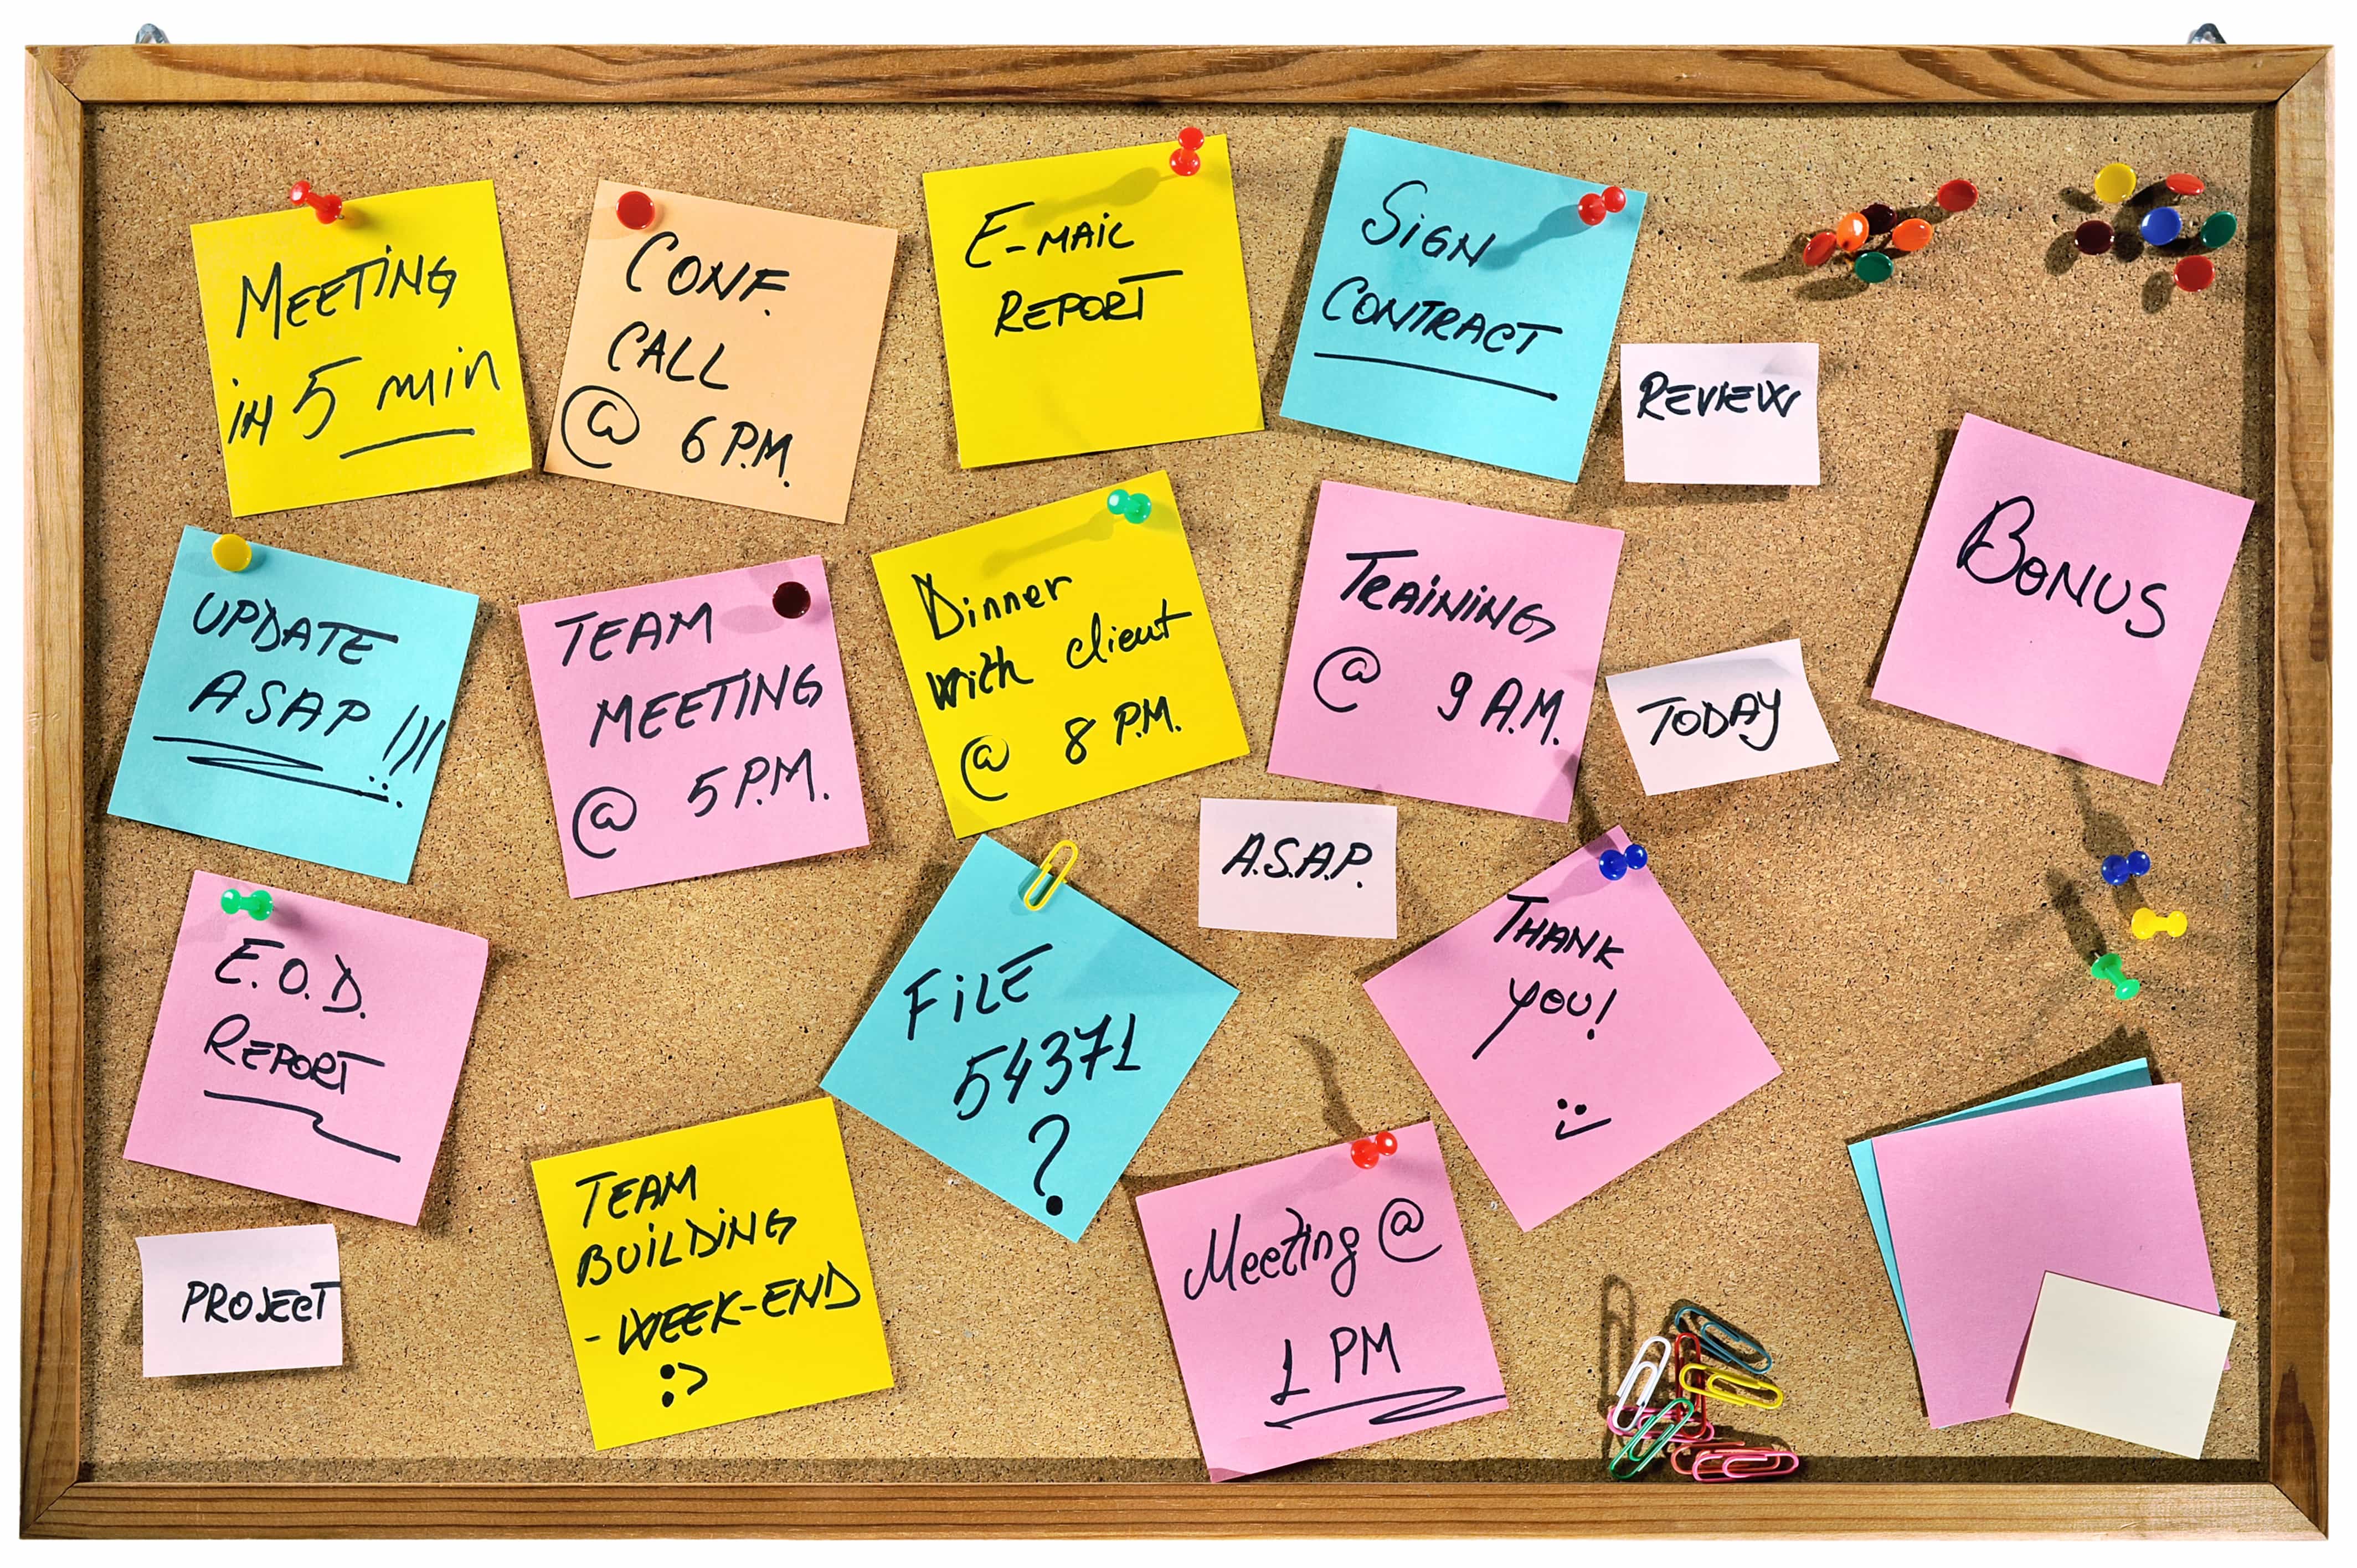 MEETING
in 5 min
CONF.
CALL
@ 6 P.M.
E-MAIL
REPORT
SIGN
CONTRACT
REVIEW
BONUS
UPDATE
ASAP!!!
TEAM
MEETING
@ 5 P.M.
Dinner
with client
@ 8 P.M.
TRAINING
@ 9 A.M.
TODAY
A.S.A.P.
E.O.D.
REPORT
FILE
54371
?
THANK
YOU!
:)
PROJECT
TEAM
BUILDING
- WEEK-END
:)
Meeting @
1 PM